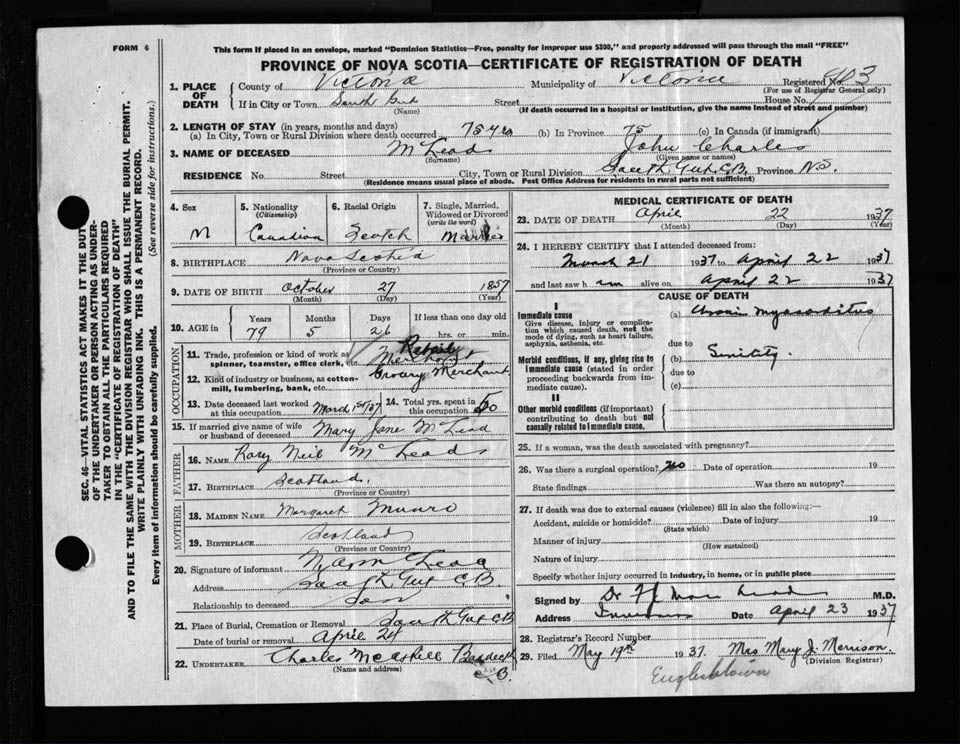 FORM 6
This form if placed in an envelope, marked "Dominion Statistics—Free, penalty for improper use $300," and properly addressed will pass through the mail "FREE"
PROVINCE OF NOVA SCOTIA—CERTIFICATE OF REGISTRATION OF DEATH
1. PLACE OF DEATH County of Victoria Municipality of Victoria Registered No. 903
(For use of Registrar General only)
If in City or Town South Gut Street House No.
(Name) (If death occurred in a hospital or institution, give the name instead of street and number)
2. LENGTH OF STAY (in years, months and days)
(a) In City, Town or Rural Division where death occurred 75 yrs (b) In Province 75 (c) In Canada (if immigrant)
3. NAME OF DECEASED McLeod John Charles
(Surname) (Given name or names)
RESIDENCE No. Street City, Town or Rural Division South Gut C.B. Province N.S.
(Residence means usual place of abode. Post Office Address for residents in rural parts not sufficient)
4. Sex
M
5. Nationality
(Citizenship)
Canadian
6. Racial Origin
Scotch
7. Single, Married, Widowed or Divorced
(write the word)
Married
8. BIRTHPLACE Nova Scotia
(Province or Country)
9. DATE OF BIRTH October 27 1857
(Month) (Day) (Year)
10. AGE in Years Months Days If less than one day old
79 5 26 hrs. or min.
OCCUPATION
11. Trade, profession or kind of work as spinner, teamster, office clerk, etc. Retail Merchant
12. Kind of industry or business, as cotton-mill, lumbering, bank, etc. Grocery Merchant
13. Date deceased last worked at this occupation March 1st/37
14. Total yrs. spent in this occupation 50
15. If married give name of wife or husband of deceased Mary Jane McLeod
FATHER
16. NAME Rory Neil McLeod
17. BIRTHPLACE Scotland
(Province or Country)
MOTHER
18. MAIDEN NAME Margaret Munro
19. BIRTHPLACE Scotland
(Province or Country)
20. Signature of informant McLeod
Address South Gut C.B.
Relationship to deceased Son
21. Place of Burial, Cremation or Removal South Gut C.B
Date of burial or removal April 24
22. UNDERTAKER Charles McAskill Baddeck
(Name and address) C.B.
MEDICAL CERTIFICATE OF DEATH
23. DATE OF DEATH April 22 1937
(Month) (Day) (Year)
24. I HEREBY CERTIFY that I attended deceased from:
March 21 1937 to April 22 1937
and last saw h im alive on April 22 1937
CAUSE OF DEATH
I
Immediate cause
Give disease, injury or complication which caused death, not the mode of dying, such as heart failure, asphyxia, asthenia, etc.
(a) Chronic myocarditis
due to
Morbid conditions, if any, giving rise to immediate cause (stated in order proceeding backwards from immediate cause).
(b) Senility.
due to
(c)
II
Other morbid conditions (if important) contributing to death but not causally related to immediate cause.
25. If a woman, was the death associated with pregnancy?
26. Was there a surgical operation? no Date of operation 19
State findings Was there an autopsy?
27. If death was due to external causes (violence) fill in also the following:—
Accident, suicide or homicide? Date of injury 19
(State which)
Manner of injury
(How sustained)
Nature of injury
Specify whether injury occurred in industry, in home, or in public place
Signed by Dr M.D.
Address Date April 23 1937
28. Registrar's Record Number
29. Filed May 19th 1937. Mrs Mary J. Morrison
(Division Registrar)
Englishtown
SEC. 46—VITAL STATISTICS ACT MAKES IT THE DUTY
OF THE UNDERTAKER OR PERSON ACTING AS UNDER-
TAKER TO OBTAIN ALL THE PARTICULARS REQUIRED
IN THE "CERTIFICATE OF REGISTRATION OF DEATH"
AND TO FILE THE SAME WITH THE DIVISION REGISTRAR WHO SHALL ISSUE THE BURIAL PERMIT.
WRITE PLAINLY WITH UNFADING INK. THIS IS A PERMANENT RECORD.
Every item of information should be carefully supplied. (See reverse side for instructions.)